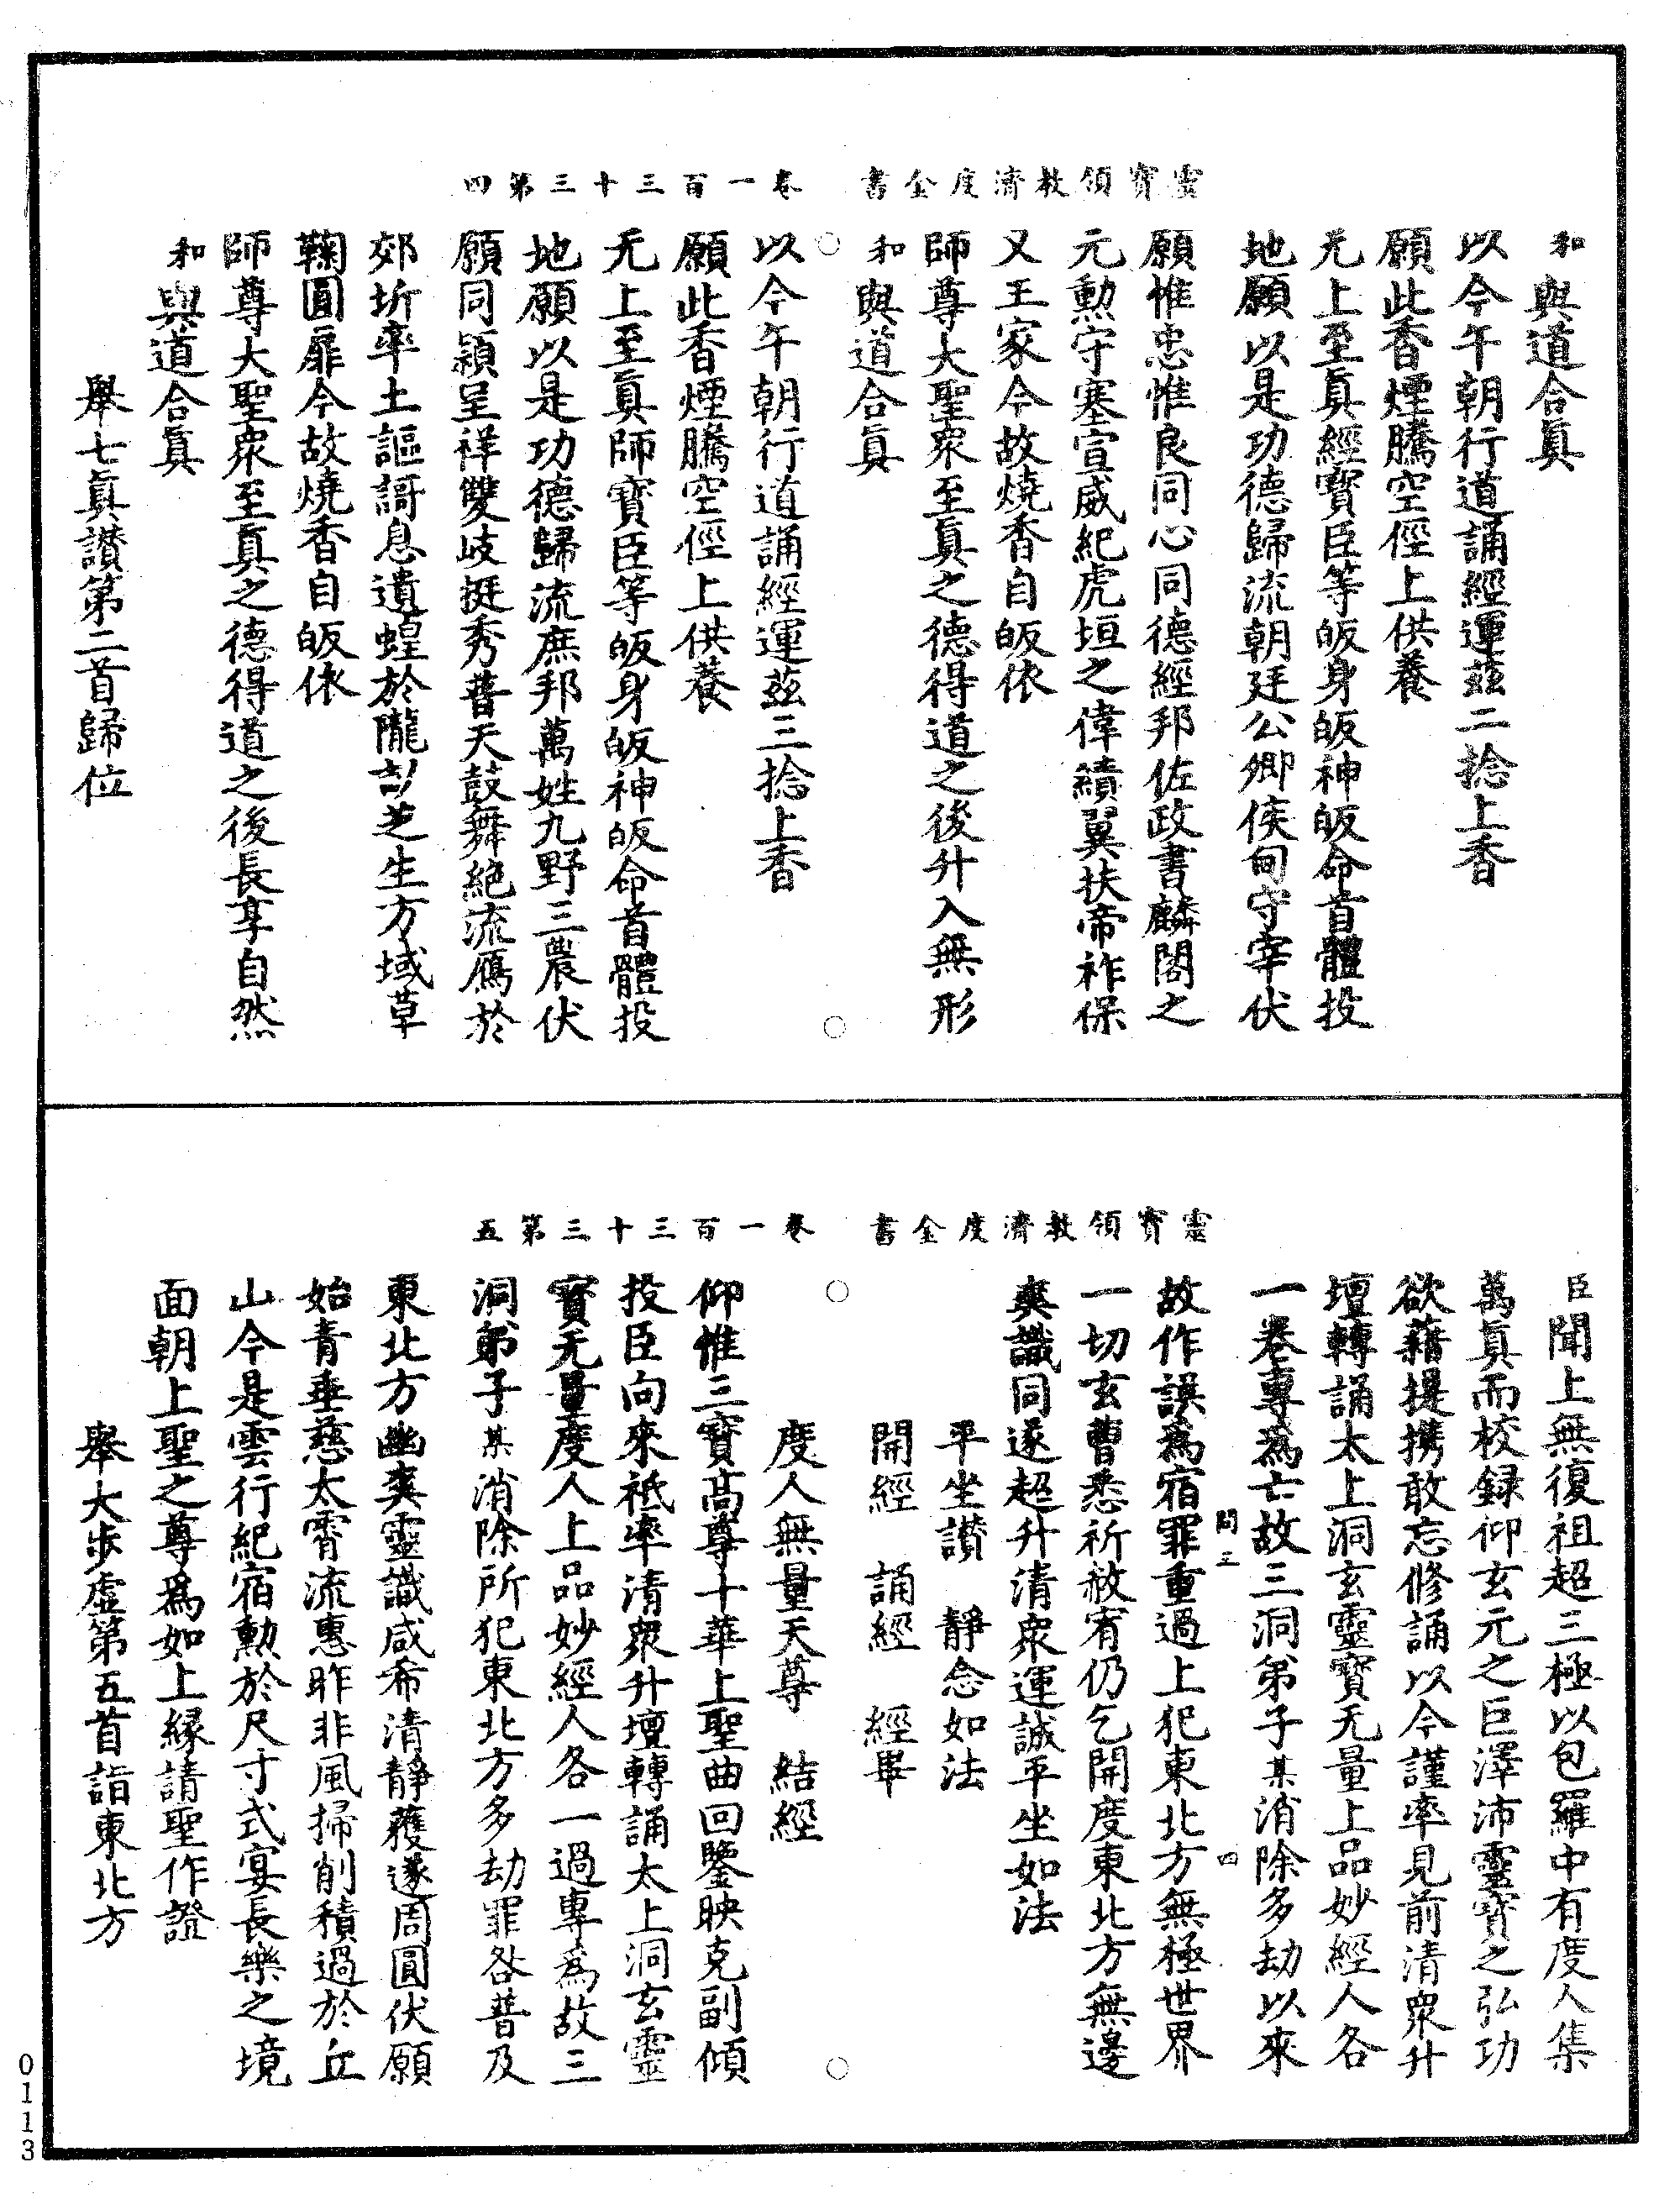 靈寶領教濟度金書 卷一百三十三第四
和與道合眞
以今午朝行道誦經運茲二捻上香
願此香煙騰空徑上供養
无上至眞經寶臣等皈身皈神皈命首體投
地願以是功德歸流朝廷公卿侯甸守宰伏
願惟忠惟良同心同德經邦佐政書麟閣之
元勲守塞宣威紀虎垣之偉績翼扶帝祚保
乂王家今故燒香自皈依
師尊大聖衆至眞之德得道之後升入無形
和與道合眞
以今午朝行道誦經運茲三捻上香
願此香煙騰空徑上供養
无上至眞師寶臣等皈身皈神皈命首體投
地願以是功德歸流庶邦萬姓九野三農伏
願同穎呈祥雙歧挺秀普天鼓舞絶流鴈於
郊圻率土謳謌息遺蝗於隴畝芝生方域草
鞠圓扉今故燒香自皈依
師尊大聖衆至眞之德得道之後長享自然
和與道合眞
舉七眞讃第二首歸位
靈寶領教濟度金書 卷一百三十三第五
臣聞上無復祖超三極以包羅中有度人集
萬眞而校録仰玄元之巨澤沛靈寶之弘功
欲藉提携敢忘修誦以今謹率見前清衆升
壇轉誦太上洞玄靈寶无量上品妙經人各
一卷專爲亡故三洞弟子某消除多劫以來
四
故作誤爲宿罪重過上犯東北方無極世界
一切玄曹悉祈赦宥仍乞開度東北方無邊
爽識同遂超升清衆運誠平坐如法
平坐讃 靜念如法
開經 誦經 經畢
度人無量天尊 結經
仰惟三寶高尊十華上聖曲回鑒映克副傾
投臣向來祇率清衆升壇轉誦太上洞玄靈
寶无量度人上品妙經人各一過專爲故三
洞弟子某消除所犯東北方多劫罪咎普及
東北方幽爽靈識咸希清靜蘖遂周圓伏願
始青垂慈太霄流惠昨非風掃削積過於丘
山今是雲行紀宿勲於尺寸式宴長樂之境
面朝上聖之尊爲如上緣請聖作證
舉大步虛第五首詣東北方
0113